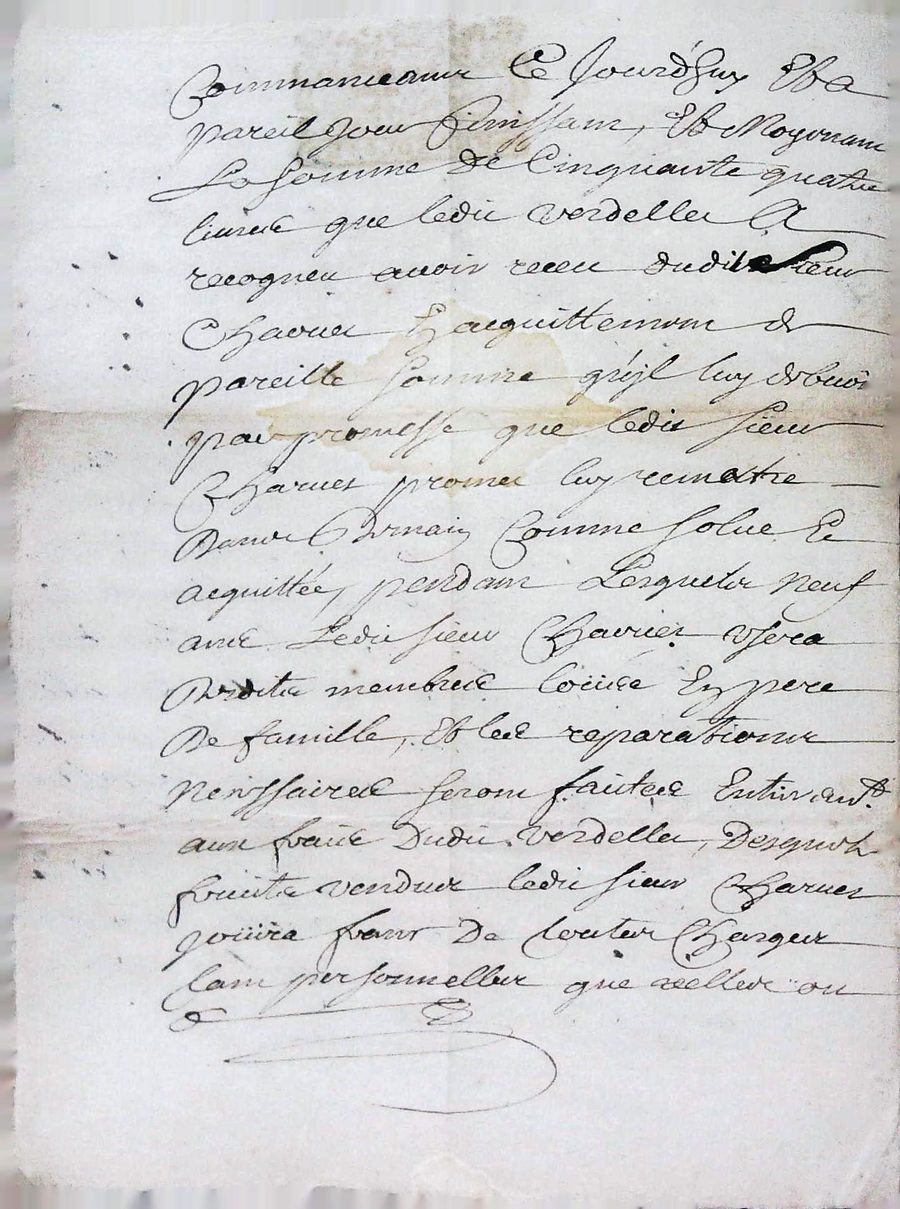 Commanceant Ce Jourdhuy Et a
pareil Jour finissant, Et Moyenant
La somme de Cinquante quatre
livres que ledit Verdellet A
recogneu avoir receu dudit sieur
Charves acquittement de
pareille somme qu'jl luy debvoit
par promesse que ledit sieur
Charves promet luy remetre
Dans Demain Comme solue Et
acquittée, pendant Lesquels Neuf
ans Ledit sieur Charves Usera
Desdits membres loüés En pere
De famille, Et les reparations
Nenssaires seront faites Entierement
aux frais Dudit Verdellet, Desquels
fruits vendus ledit sieur Charves
joüira franc De toutes Charges
tant personnelles que reelles ou